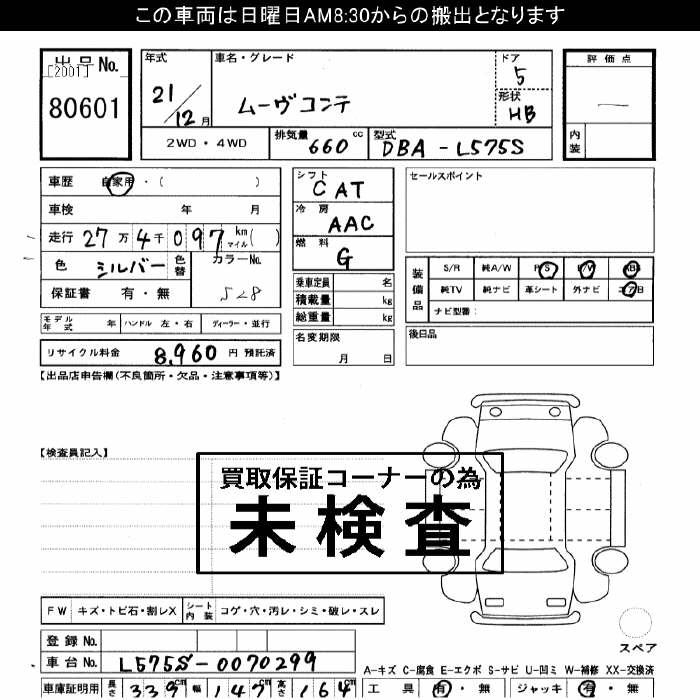 この車両は日曜日AM8:30からの搬出となります
出品No.
[2001]
80601
年式
21/12月
車名・グレード
ムーヴコンテ
ドア
5
形状
HB
評価点
—
内装
2WD・4WD
排気量 660 cc
型式 DBA-L575S
車歴 自家用・( )
車検 年 月
走行 27万4千097 km マイル( )
色 シルバー 色替
カラーNo.
528
保証書 有・無
シフト
CAT
冷房
AAC
燃料
G
乗車定員 名
積載量 kg
総重量 kg
セールスポイント
装備品
S/R 純A/W P/S P/W ABS
純TV 純ナビ 革シート 外ナビ エアB
ナビ型番:
モデル年式 年 ハンドル 左・右 ディーラー・並行
リサイクル料金 8,960 円 預託済
名変期限
月 日
後日品
【出品店申告欄(不良箇所・欠品・注意事項等)】
【検査員記入】
買取保証コーナーの為
未検査
FW キズ・トビ石・割レX シート内装 コゲ・穴・汚レ・シミ・破レ・スレ
登録No.
車台No. L575S-0070299
スペア
A-キズ C-腐食 E-エクボ S-サビ U-凹ミ W-補修 XX-交換済
車庫証明用 長さ 339cm 幅 147cm 高さ 164cm
工具 有・無 ジャッキ 有・無